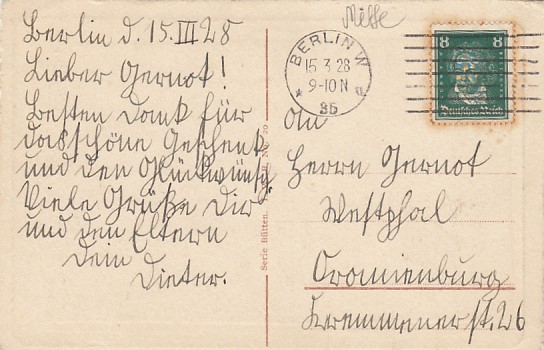 Berlin d. 15.III 28
Lieber Gernot!
Besten Dank für
das schöne Geschenk
und den Glückwünsch.
Viele Grüße Dir
und den Eltern
Dein
Dieter.
Serie Bütten.
BERLIN W
15.3.28
9-10 N
35
8 8
Deutsches Reich
An
Herrn Gernot
Westphal
Oranienburg
Kremmenerst. 26